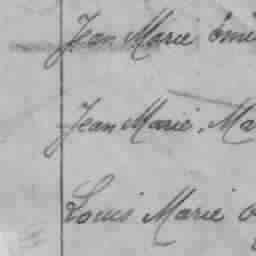 Jean Marie
Jean Marie, Ma
Louis Marie